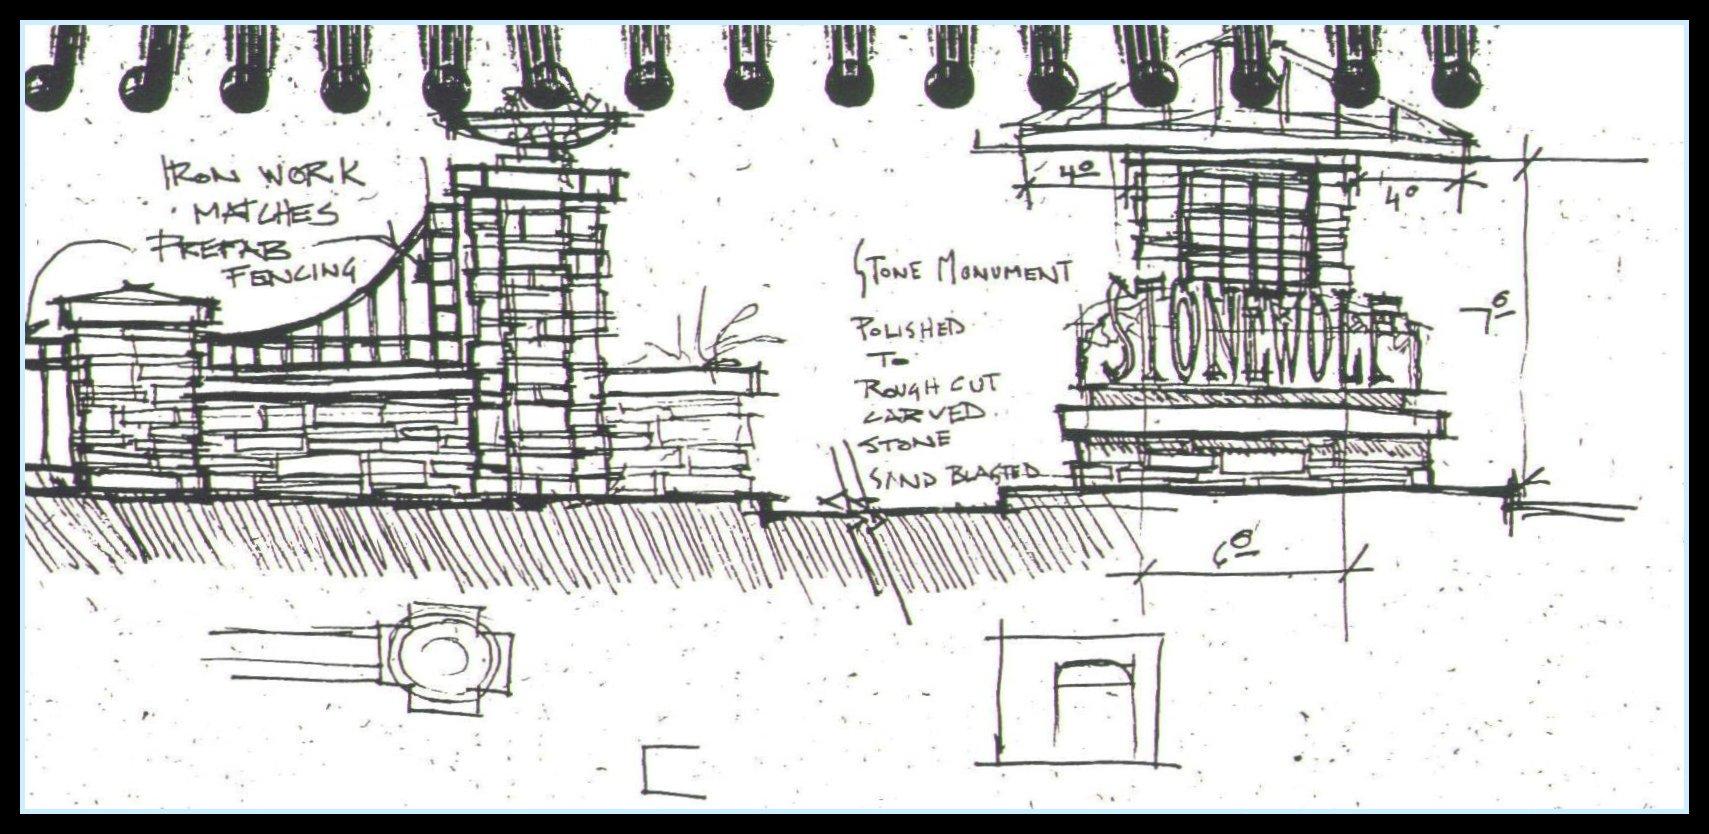 IRON WORK
MATCHES
PREFAB
FENCING
STONE MONUMENT
POLISHED
TO
ROUGH CUT
CARVED
STONE
SAND BLASTED
4⁰
4⁰
STONEWOLF
7⁶
6⁰